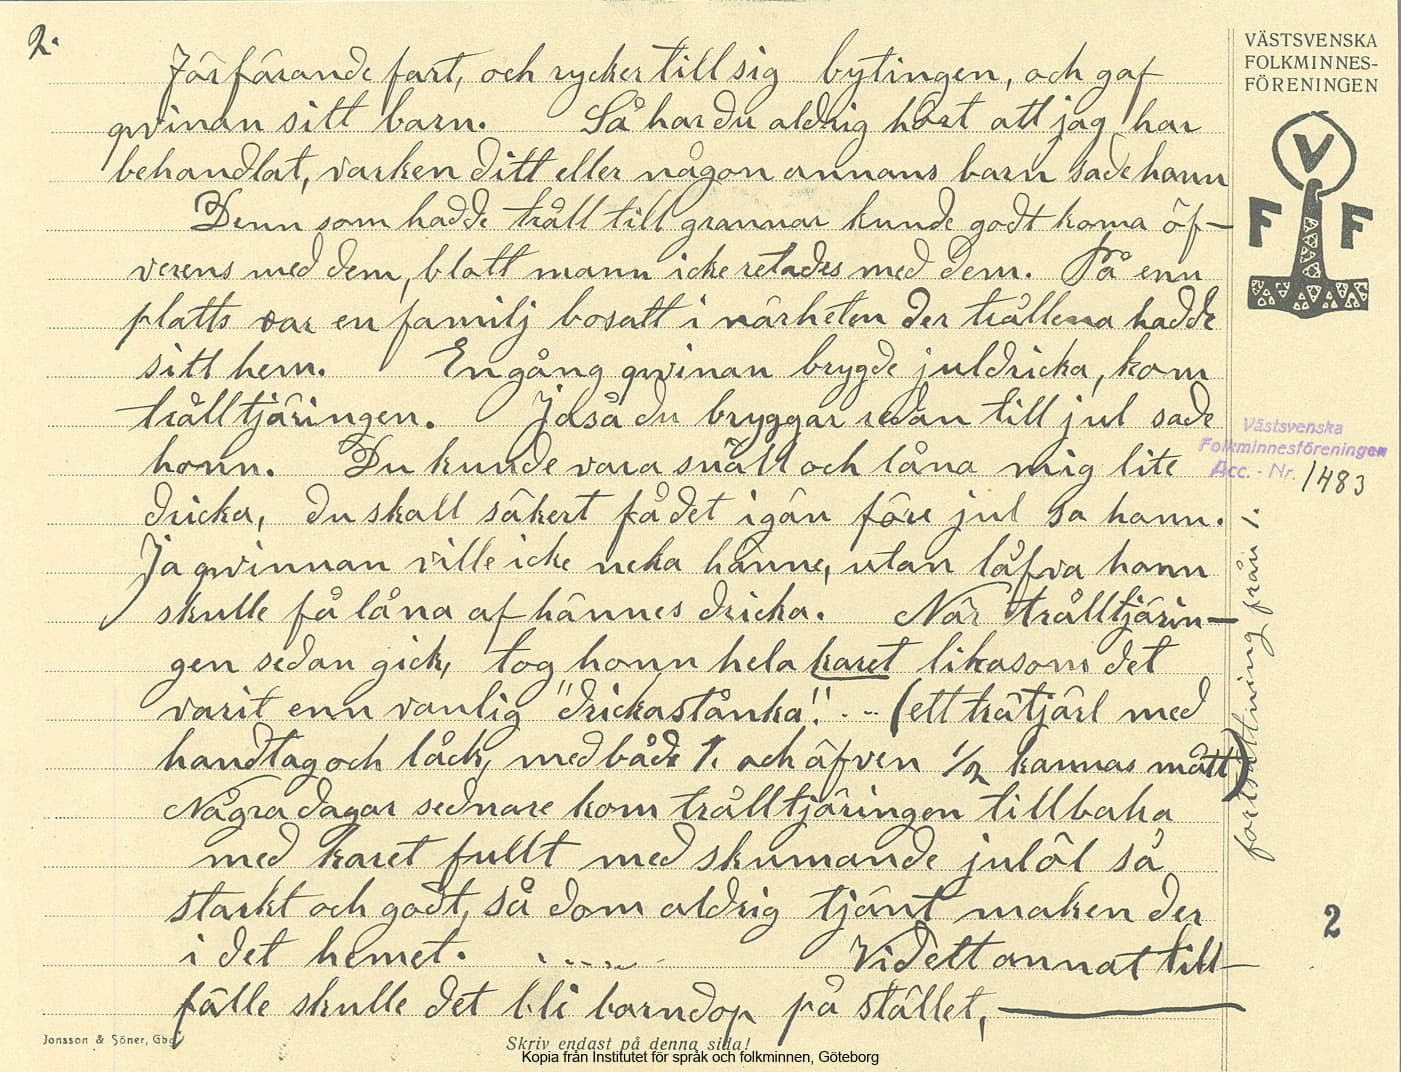 2.
Järfärande fart, och rycker till sig bytingen, och gaf
qvinan sitt barn. Så har du aldrig hört att jag har
behandlat, varken ditt eller någon annans barn sade hann
Denn som hadde tråll till grannar kunde godt koma öf-
verens med dem, blatt mann icke retades med dem. På enn
platts var en familj bosatt i närheten der trållena hadde
sitt hem. En gång qvinan brygde juldricka, kom
trålltjäringen. Jaså du bryggar redan till jul sade
honn. Du kunde vara snäll och låna mig lite
dricka, du skall säkert få det igän före jul sa hann.
Ja qvinnan ville icke neka hänne, utan låfva honn
skulle få låna af hännes dricka. När trålltjärin-
gen sedan gick, tog honn hela karet likasom det
varit enn vanlig "drickastånka"! - - (ett trätjärl med
handtag och låck, med både 1. och äfven 1/2 kannas mått)
Några dagar sednare kom trålltjäringen tillbaka
med karet fullt med skumande julöl så
starkt och godt, så dom aldrig tjänt maken der
i det hemet. . - - - - Vid ett annat till-
fälle skulle det bli barndop på stället,
VÄSTSVENSKA
FOLKMINNES-
FÖRENINGEN
V
F F
Västsvenska
Folkminnesföreningen
Acc. - Nr. 1483
fortsättning från 1.
2
Jonsson & Söner, Gbg
Skriv endast på denna sida!
Kopia från Institutet för språk och folkminnen, Göteborg